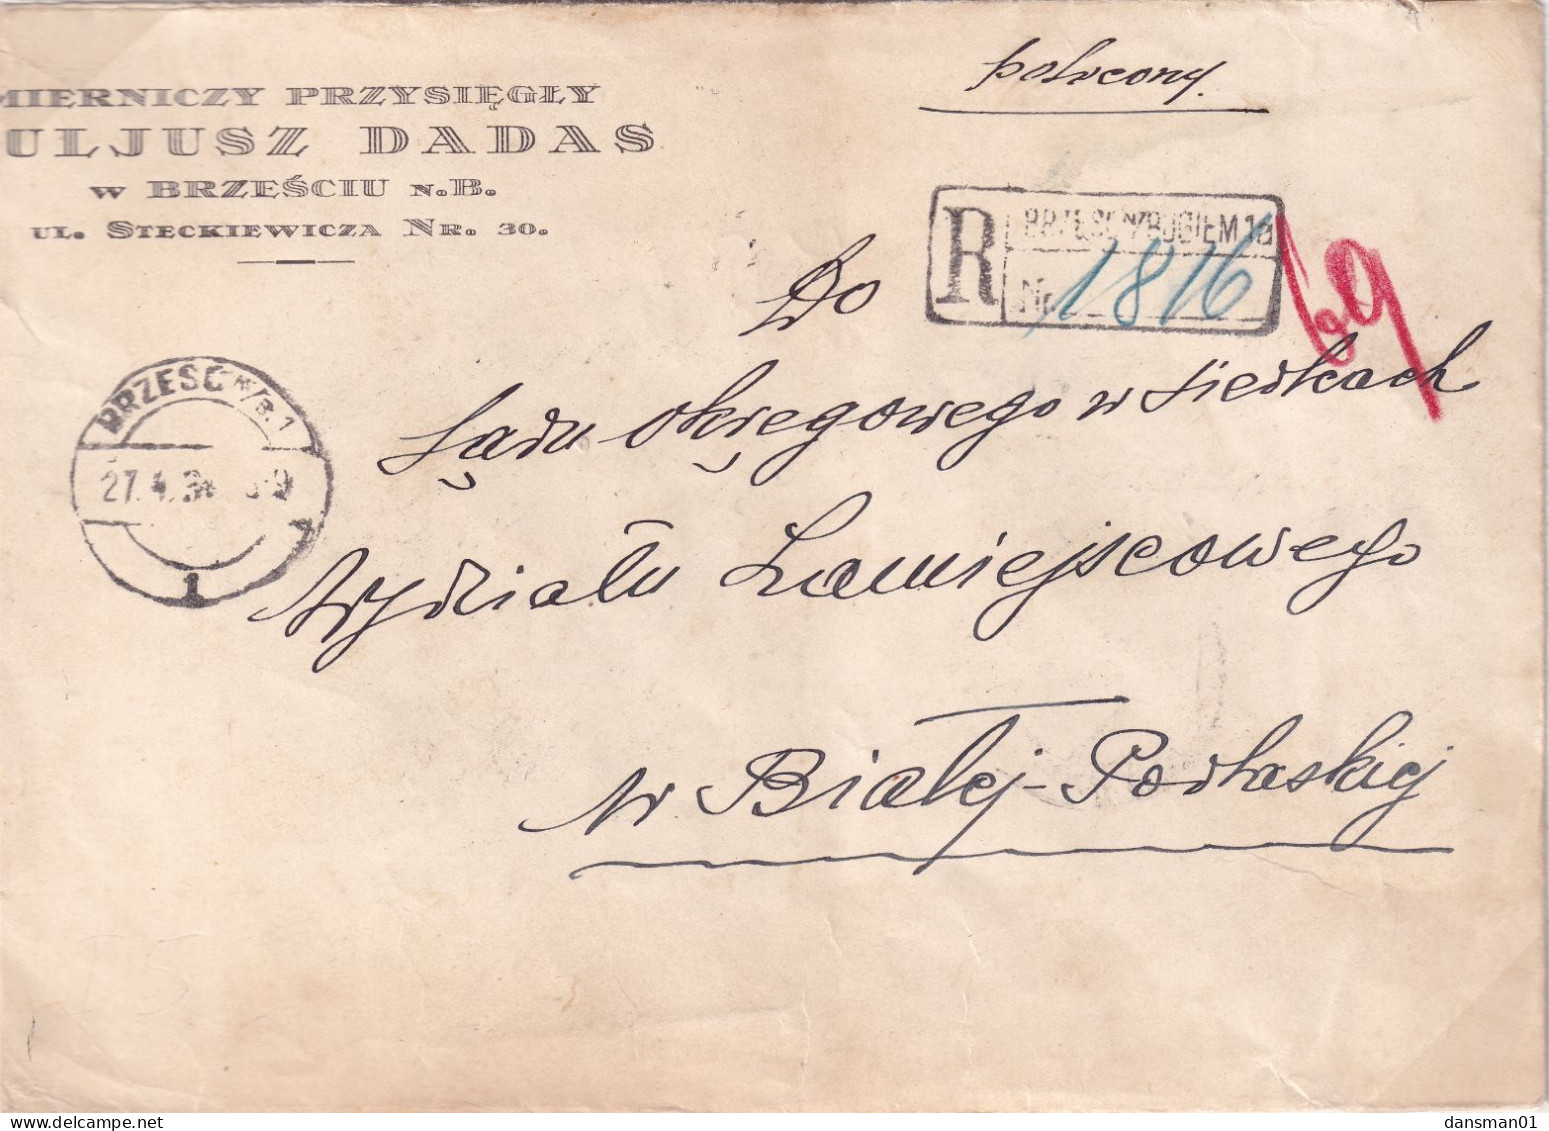 MIERNICZY PRZYSIĘGŁY
ULJUSZ DADAS
W BRZEŚCIU N.B.
UL. STECKIEWICZA NR. 30.
polecony.
R BRZEŚĆ N/BUGIEM 1a
Nr. 1816
69
Do
Sądu Okręgowego w Siedlcach
Wydziału Zamiejscowego
w Białej-Podlaskiej
BRZEŚĆ N/B. 1
27. 4. 34
1
dansman01